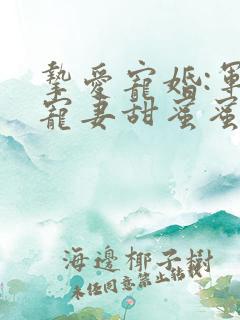 摯愛寵婚:軍
寵妻甜蜜蜜
海邊椰子樹
未経同意禁止轉載